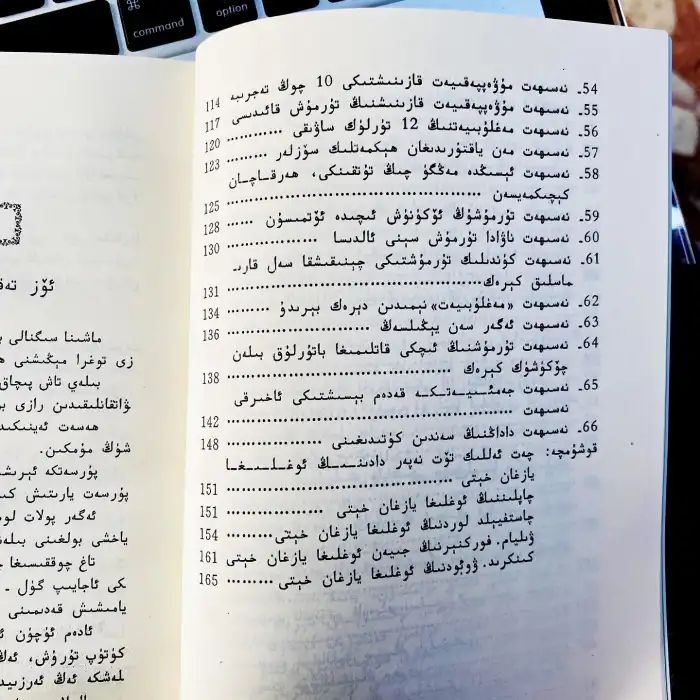 command
option
54ـ نەسىھەت مۇۋەپپەقىيەت قازىنىشتىكى 10 چوڭ تەجرىبە 114
55ـ نەسىھەت مۇۋەپپەقىيەت قازىنىشنىڭ تۇرمۇش قائىدىسى 117
56ـ نەسىھەت مەغلۇبىيەتنىڭ 12 تۈرلۈك ساۋىقى ............ 120
57ـ نەسىھەت مەن ياقتۇرىدىغان ھېكمەتلىك سۆزلەر ......... 123
58ـ نەسىھەت ئېسىڭدە مەڭگۈ چىڭ تۇتقىنكى، ھەرقاچان
كېچىكمەيسەن ........................................ 125
59ـ نەسىھەت تۇرمۇشۇڭ ئۆكۈنۈش ئىچىدە ئۆتمىسۇن ...... 128
60ـ نەسىھەت ناۋادا تۇرمۇش سېنى ئالدىسا ................. 130
61ـ نەسىھەت كۈندىلىك تۇرمۇشتىكى چېنىقىشقا سەل قارىـ
ماسلىق كېرەك........................................ 131
62ـ نەسىھەت «مەغلۇبىيەت» نېمىدىن دېرەك بېرىدۇ ......... 134
63ـ نەسىھەت ئەگەر سەن يېڭىلسەڭ ........................ 136
64ـ نەسىھەت تۇرمۇشنىڭ ئىچكى قاتلىمىغا باتۇرلۇق بىلەن
چۆكۈشۈڭ كېرەك ........................................ 138
65ـ نەسىھەت جەمئىيەتكە قەدەم بېسىشتىكى ئاخىرقى
نەسىھەت ........................................ 142
66ـ نەسىھەت داداڭنىڭ سەندىن كۈتىدىغىنى ................. 148
قوشۇمچە: چەت ئەللىك تۆت نەپەر دادىنىڭ ئوغلىغا
يازغان خېتى ........................................ 151
چاپلىننىڭ ئوغلىغا يازغان خېتى ........................ 151
چاستفېيلد لوردنىڭ ئوغلىغا يازغان خېتى......... 154
ۋىليام. فوركنېرنىڭ جىيەن ئوغلىغا يازغان خېتى 161
كىنكرىد. ۋوئودنىڭ ئوغلىغا يازغان خېتى ......... 165
ئۆز تەق
ماشىنا سىگنالى ب
زى توغرا مېڭىشنى ھ
بىلەي تاش پىچاق
ۋاتقانلىقىدىن رازى ب
ھەسەت ئەينىكىد
شۇڭ مۇمكىن.
پۇرسەتكە ئېرىش
پۇرسەت يارىتىش كى
ئەگەر پولات لوم
ياخشى بولغىنى بىلەن
تاغ چوققىسىغا چ
كى ئاجايىپ گۈل ـ
يامىشىش قەدىمىنى
ئادەم ئۈچۈن ئە
كۈتۈپ تۇرۇش، ئەڭ
لەشكە ئەڭ ئەرزىيد